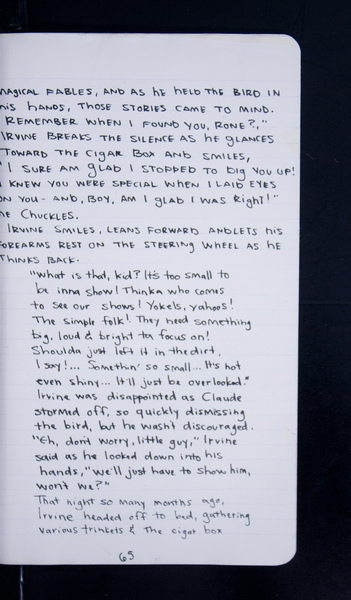 MAGICAL FABLES, AND AS HE HELD THE BIRD IN
HIS HANDS, THOSE STORIES CAME TO MIND.
REMEMBER WHEN I FOUND YOU, RONE?,"
IRVINE BREAKS THE SILENCE AS HE GLANCES
TOWARD THE CIGAR BOX AND SMILES,
"I SURE AM GLAD I STOPPED TO DIG YOU UP!
I KNEW YOU WERE SPECIAL WHEN I LAID EYES
ON YOU - AND, BOY, AM I GLAD I WAS RIGHT!"
HE CHUCKLES.
IRVINE SMILES, LEANS FORWARD AND LETS HIS
FOREARMS REST ON THE STEERING WHEEL AS HE
THINKS BACK.
"What is that, kid? It's too small to
be inna show! Thinka who comes
to see our shows! Yokels, yahoos!
The simple folk! They need something
big, loud & bright ta focus on!
Shoulda just left it in the dirt,
I say!... Somethin' so small... It's not
even shiny... It'll just be overlooked."
Irvine was disappointed as Claude
stormed off, so quickly dismissing
the bird, but he wasn't discouraged.
"Eh, don't worry, little guy," Irvine
said as he looked down into his
hands, "we'll just have to show him,
won't we?"
That night so many months ago,
Irvine headed off to bed, gathering
various trinkets & the cigar box
65